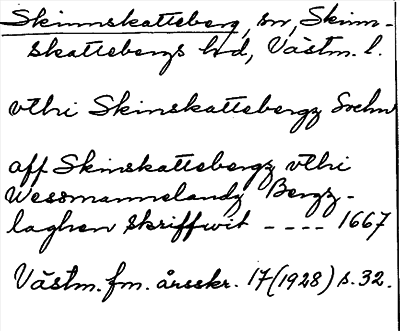 Skinnskatteberg, sn, Skinn-
skattebergs hd, Västm. l.
vthi Skinskattebergz Sochn
aff Skinskattebergz vthi
Wessmannelandz Bergz-
laghen skriffwit ---- 1667
Västm. fm. årsskr. 17(1928) s. 32.